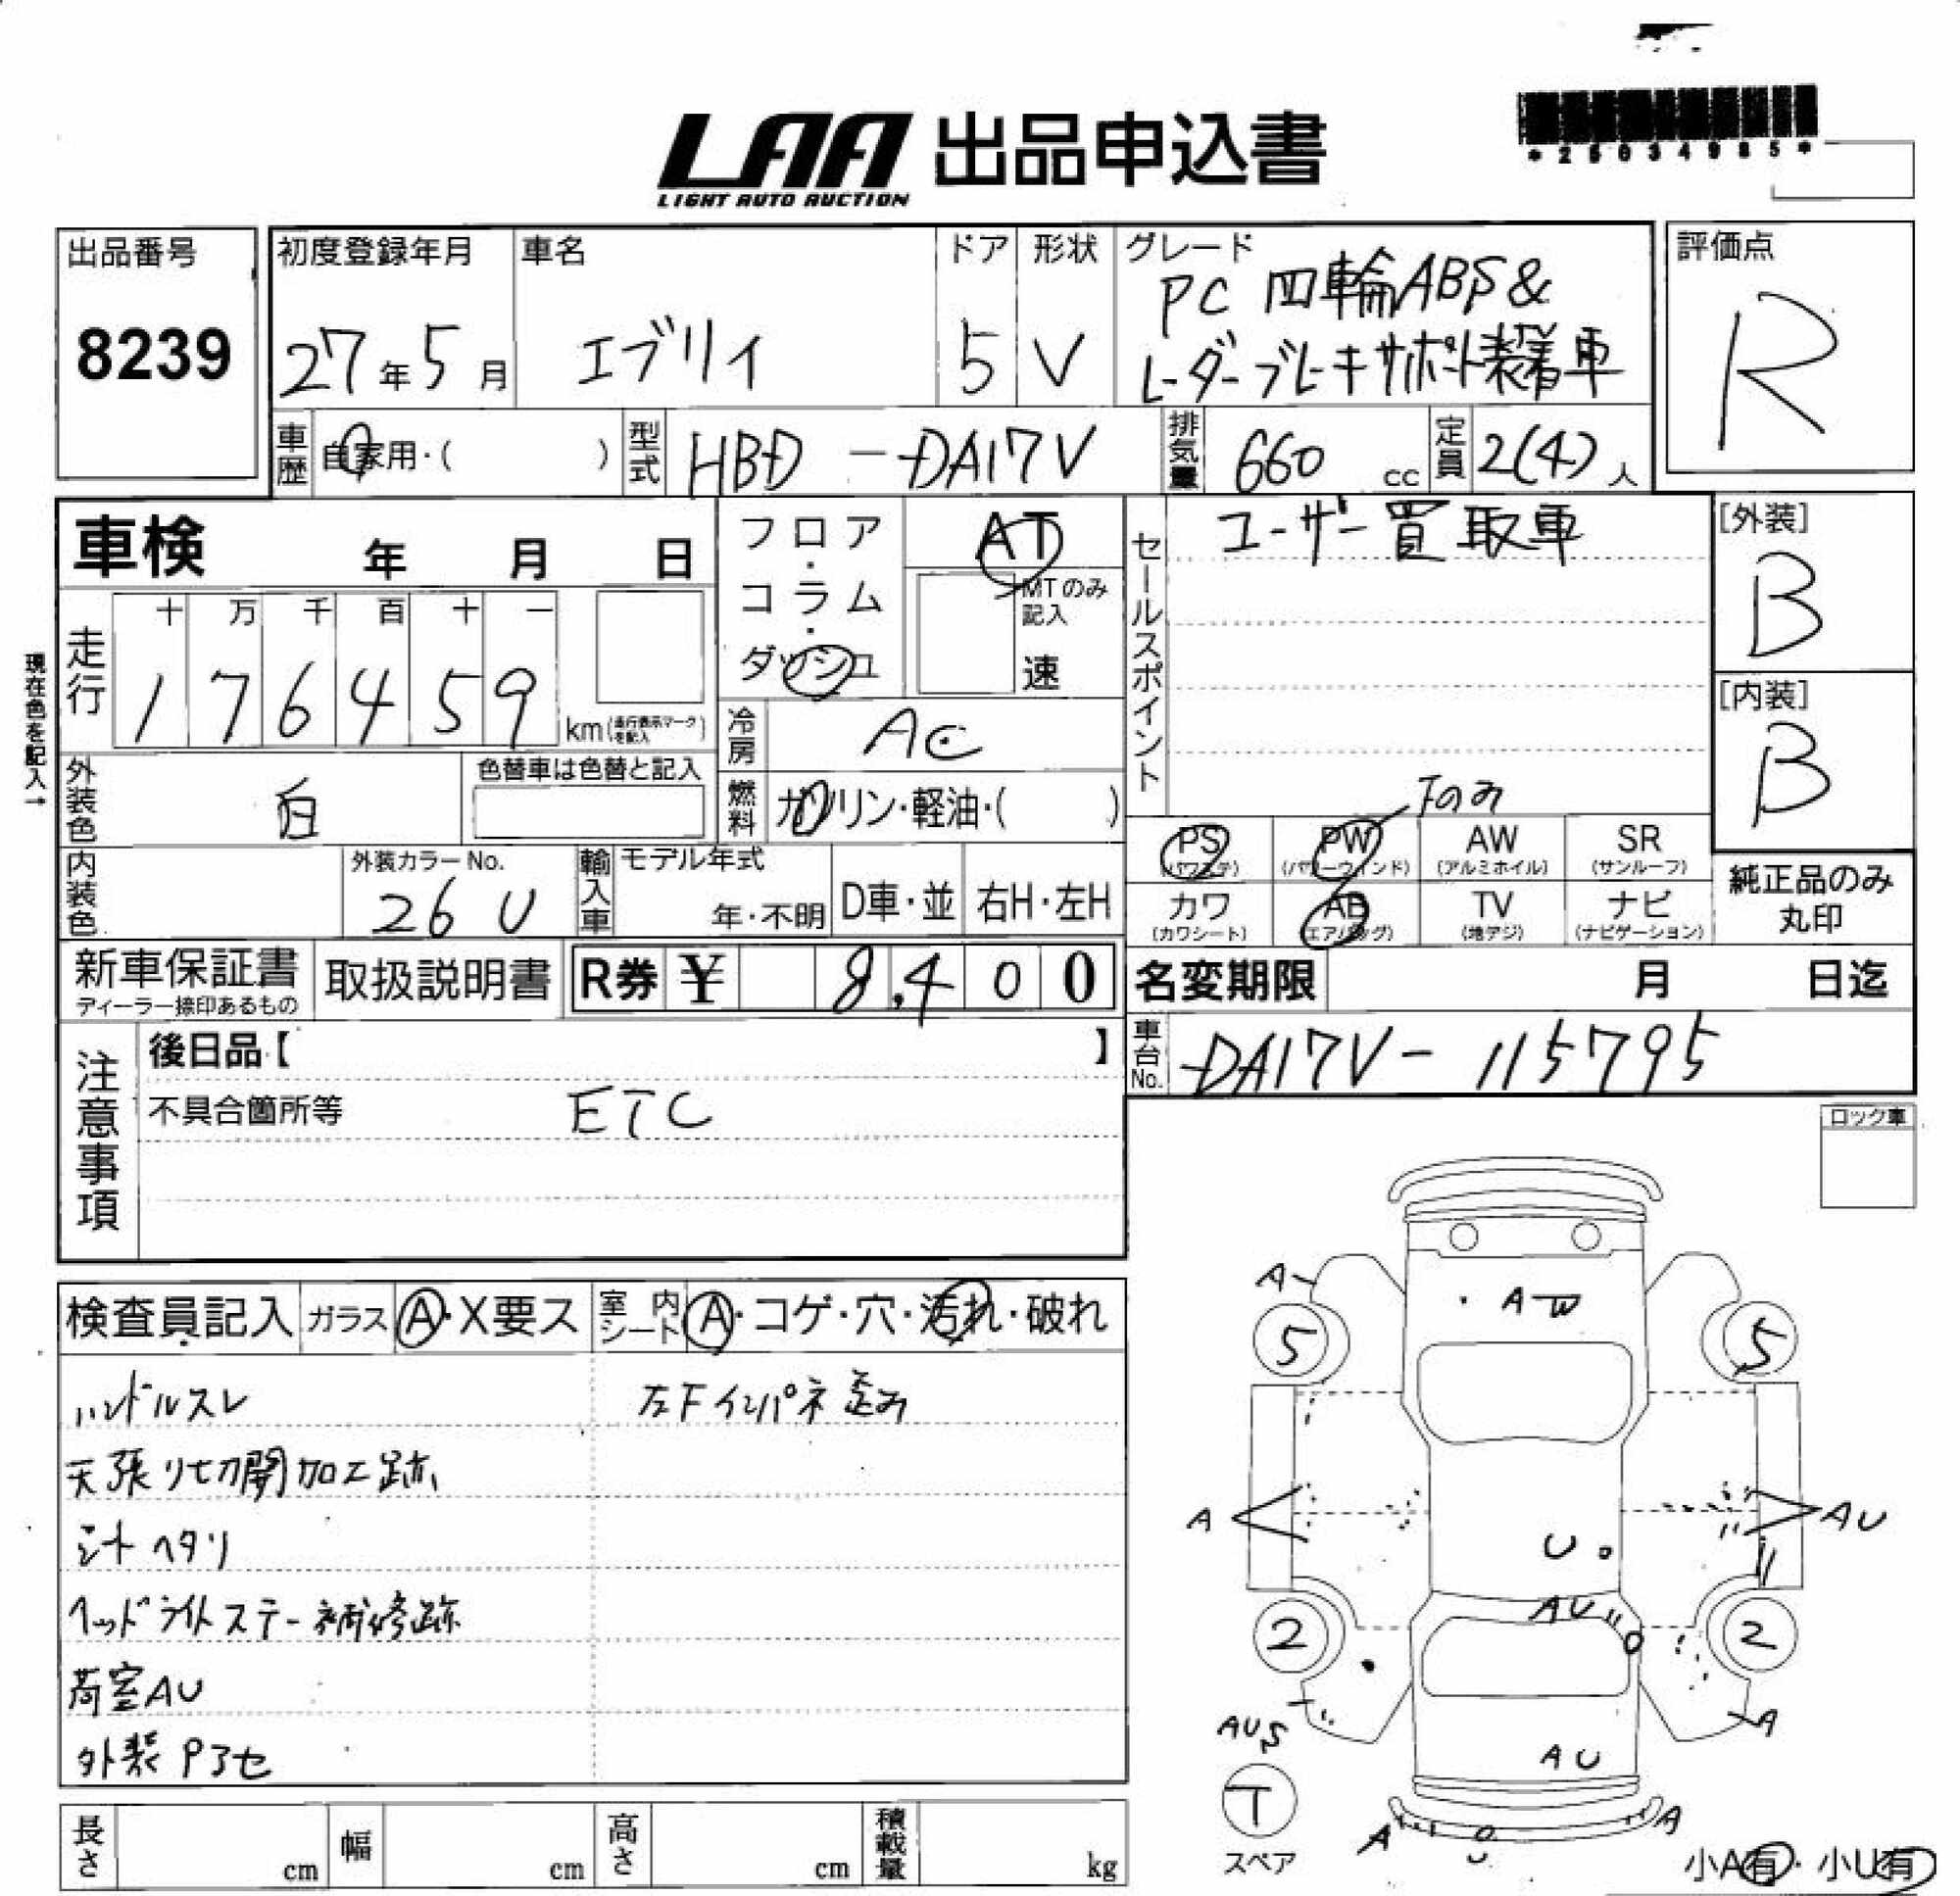 *25034985*
LAA 出品申込書
LIGHT AUTO AUCTION
出品番号
8239
初度登録年月
27年5月
車名
エブリイ
ドア
5
形状
V
グレード
PC 四輪ABS&
レーダーブレーキサポート装着車
評価点
R
車歴
自家用・( )
型式
HBD-DA17V
排気量
660 cc
定員
2(4)人
車検 年 月 日
フロア・コラム・ダッシュ
AT
MTのみ記入
速
セールスポイント
ユーザー買取車
[外装]
B
[内装]
B
現在色を記入→
走行
十 万 千 百 十 一
1 7 6 4 5 9
km(走行表示マークを記入)
冷房
AC
外装色
白
色替車は色替と記入
燃料
ガソリン・軽油・( )
Fのみ
PS (パワステ)
PW (パワーウィンド)
AW (アルミホイル)
SR (サンルーフ)
カワ (カワシート)
AB (エアバッグ)
TV (地デジ)
ナビ (ナビゲーション)
純正品のみ丸印
内装色
外装カラーNo.
26U
輸入車
モデル年式
年・不明
D車・並
右H・左H
新車保証書
ディーラー捺印あるもの
取扱説明書
R券 ¥ 8,400
名変期限 月 日迄
車台No.
DA17V-115795
注意事項
後日品【 】
不具合箇所等
ETC
ロック車
検査員記入
ガラス
A・X要ス
室内シート
A・コゲ・穴・汚れ・破れ
ハンドルスレ
左Fインパネ歪み
天張り切開加工跡
シートヘタリ
ヘッドライトステー補修跡
荷室AU
外装Pアセ
A
AW
5
5
A
AU
U
AU
2
2
AUS
A
AU
T
スペア
A
U
A
小A有・小U有
長さ cm
幅 cm
高さ cm
積載量 kg